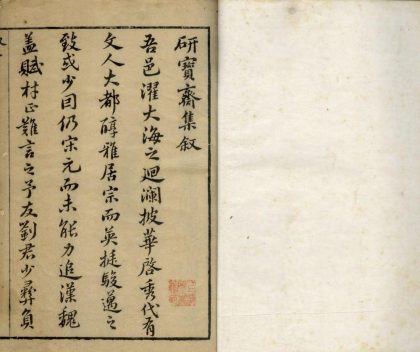 研寶齋集叙
吾邑濯大海之迴瀾披華啓秀代有
文人大都醇雅居宗而英挺駿邁之
致或少因仍宋元而未能力追漢魏
盖賦材正難言之予友劉君少彝負